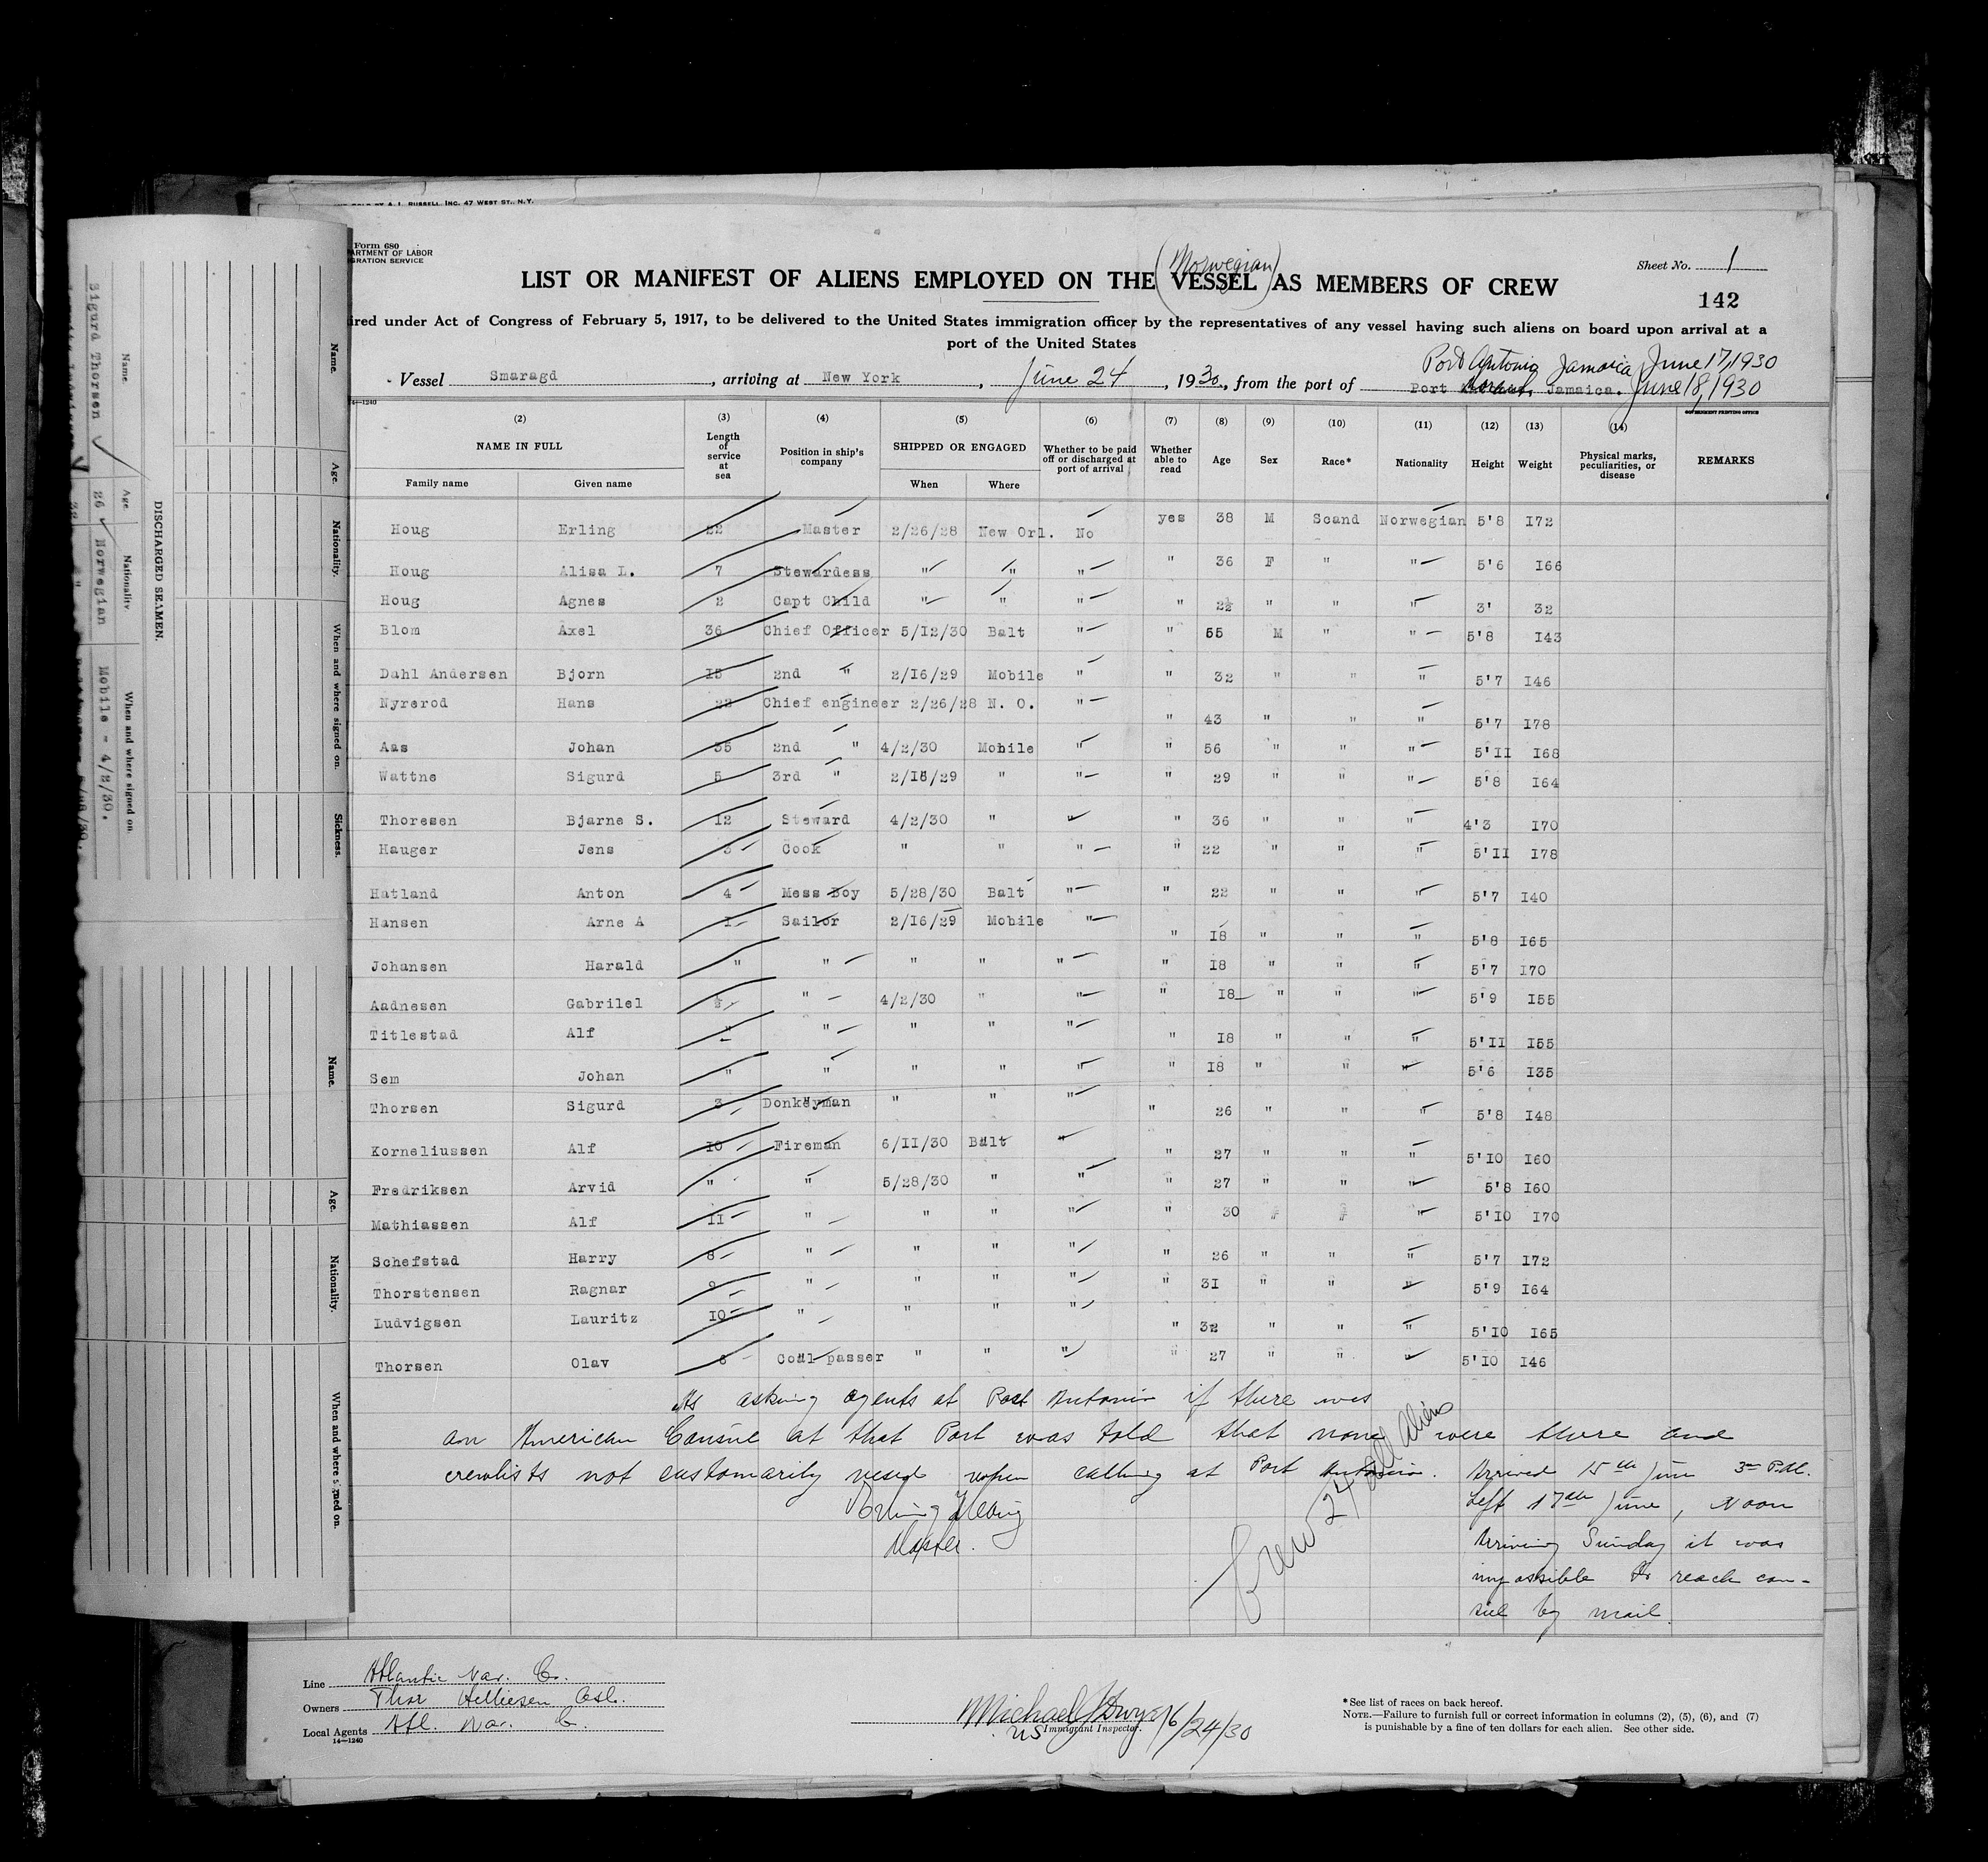 AND SOLD BY A. L. RUSSELL, INC. 47 WEST ST., N.Y.
Form 680
ARTMENT OF LABOR
GRATION SERVICE
Sheet No. 1
(Norwegian)
LIST OR MANIFEST OF ALIENS EMPLOYED ON THE VESSEL AS MEMBERS OF CREW
142
ired under Act of Congress of February 5, 1917, to be delivered to the United States immigration officer by the representatives of any vessel having such aliens on board upon arrival at a
port of the United States
Port Antonio Jamaica June 17, 1930
Vessel Smaragd, arriving at New York, June 24, 1930, from the port of Port Jamaica. June 18, 1930
14—1240
GOVERNMENT PRINTING OFFICE
(2) (3) (4) (5) (6) (7) (8) (9) (10) (11) (12) (13) (14)
NAME IN FULL Length of service at sea Position in ship's company SHIPPED OR ENGAGED Whether to be paid off or discharged at port of arrival Whether able to read Age Sex Race* Nationality Height Weight Physical marks, peculiarities, or disease REMARKS
Family name Given name When Where
Houg Erling 22 Master 2/26/28 New Orl. No yes 38 M Scand Norwegian 5'8 I72
Houg Alisa L. 7 Stewardess " " " " 36 F " " 5'6 I66
Houg Agnes 2 Capt Child " " " " 2½ " " " 3' 32
Blom Axel 36 Chief Officer 5/I2/30 Balt " " 55 M " " 5'8 I43
Dahl Andersen Bjorn I5 2nd " 2/I6/29 Mobile " " 32 " " " 5'7 I46
Nyrerod Hans 22 Chief engineer 2/26/28 N. O. " " 43 " " " 5'7 I78
Aas Johan 35 2nd " 4/2/30 Mobile " " 56 " " " 5'II I68
Wattne Sigurd 5 3rd " 2/I6/29 " " " 29 " " " 5'8 I64
Thoresen Bjarne S. I2 Steward 4/2/30 " " " 36 " " " 4'3 I70
Hauger Jens 3 Cook " " " " 22 " " " 5'II I78
Hatland Anton 4 Mess Boy 5/28/30 Balt " " 22 " " " 5'7 I40
Hansen Arne A I Sailor 2/I6/29 Mobile " " I8 " " " 5'8 I65
Johansen Harald " " " " " " I8 " " " 5'7 I70
Aadnesen Gabrilel ½ " 4/2/30 " " " I8 " " " 5'9 I55
Titlestad Alf " " " " " " I8 " " " 5'II I55
Sem Johan " " " " " " I8 " " " 5'6 I35
Thorsen Sigurd 3 Donkeyman " " " " 26 " " " 5'8 I48
Korneliussen Alf I0 Fireman 6/II/30 Balt " " 27 " " " 5'I0 I60
Fredriksen Arvid " " 5/28/30 " " " 27 " " " 5'8 I60
Mathiassen Alf II " " " " " 30 " " " 5'I0 I70
Schefstad Harry 8 " " " " " 26 " " " 5'7 I72
Thorstensen Ragnar 9 " " " " " 3I " " " 5'9 I64
Ludvigsen Lauritz I0 " " " " " 32 " " " 5'I0 I65
Thorsen Olav 8 Coal passer " " " " 27 " " " 5'I0 I46
As asking agents at Port Antonio if there was
an American Consul at that Port was told that none were there and
crewlists not customarily upon calling at Port Antonio.
Erling Houg
Master.
Crew 24 all aliens
Arrived 15th June 3 P.M.
Left 17th June, Noon
Arriving Sunday it was
impossible to reach con-
sul by mail.
Line Atlantic Nav. Co.
Owners Thor
Local Agents Atl. Nav. Co.
14—1240
Michael Dwyer 6/24/30
US Immigrant Inspector.
*See list of races on back hereof.
NOTE.—Failure to furnish full or correct information in columns (2), (5), (6), and (7)
is punishable by a fine of ten dollars for each alien. See other side.
DISCHARGED SEAMEN.
Name. Age. Nationality. When and where signed on.
Sigurd Thorsen 26 Norwegian Mobile - 4/2/30.
Name. Age. Nationality. When and where signed on. Sickness.
Name. Age. Nationality. When and where signed on.